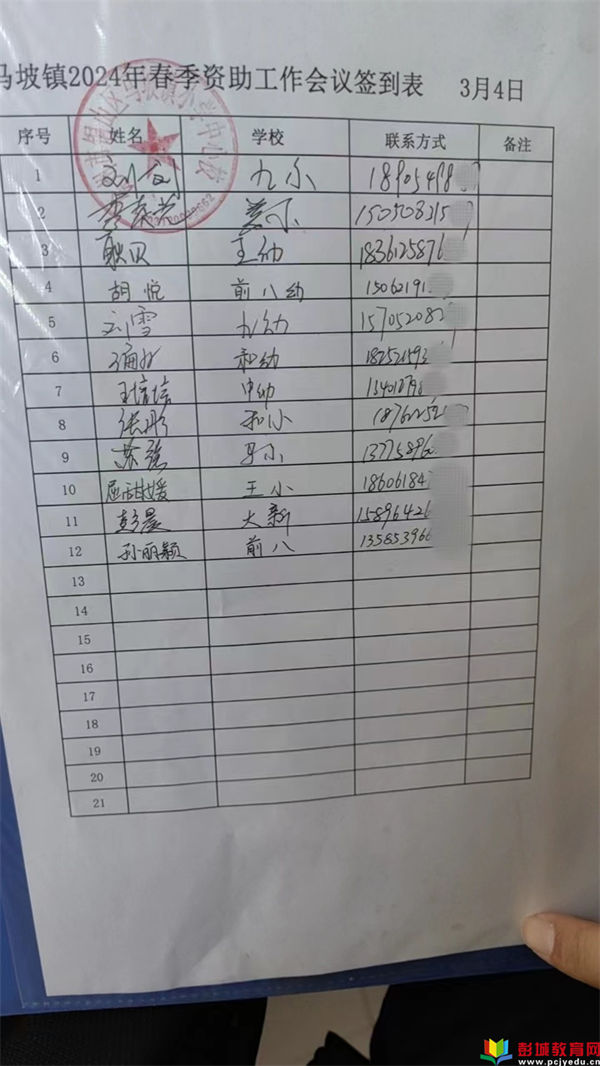 马坡镇2024年春季资助工作会议签到表 3月4日
序号 姓名 学校 联系方式 备注
1 九小 18905498
2 150508315
3 耿贝 王幼 1836125876
4 胡悦 前八幼 15062191
5 刘雪 九幼 157052082
6 和幼 182521593
7 王培培 中幼
8 张彤 和小 18762252
9 苏强 马小 137758960
10 屈甜媛 王小 18606184
11 彭晨 大新 15896426
12 孙丽颖 前八 135853966
13
14
15
16
17
18
19
20
21
彭城教育网
www.pcjyedu.cn